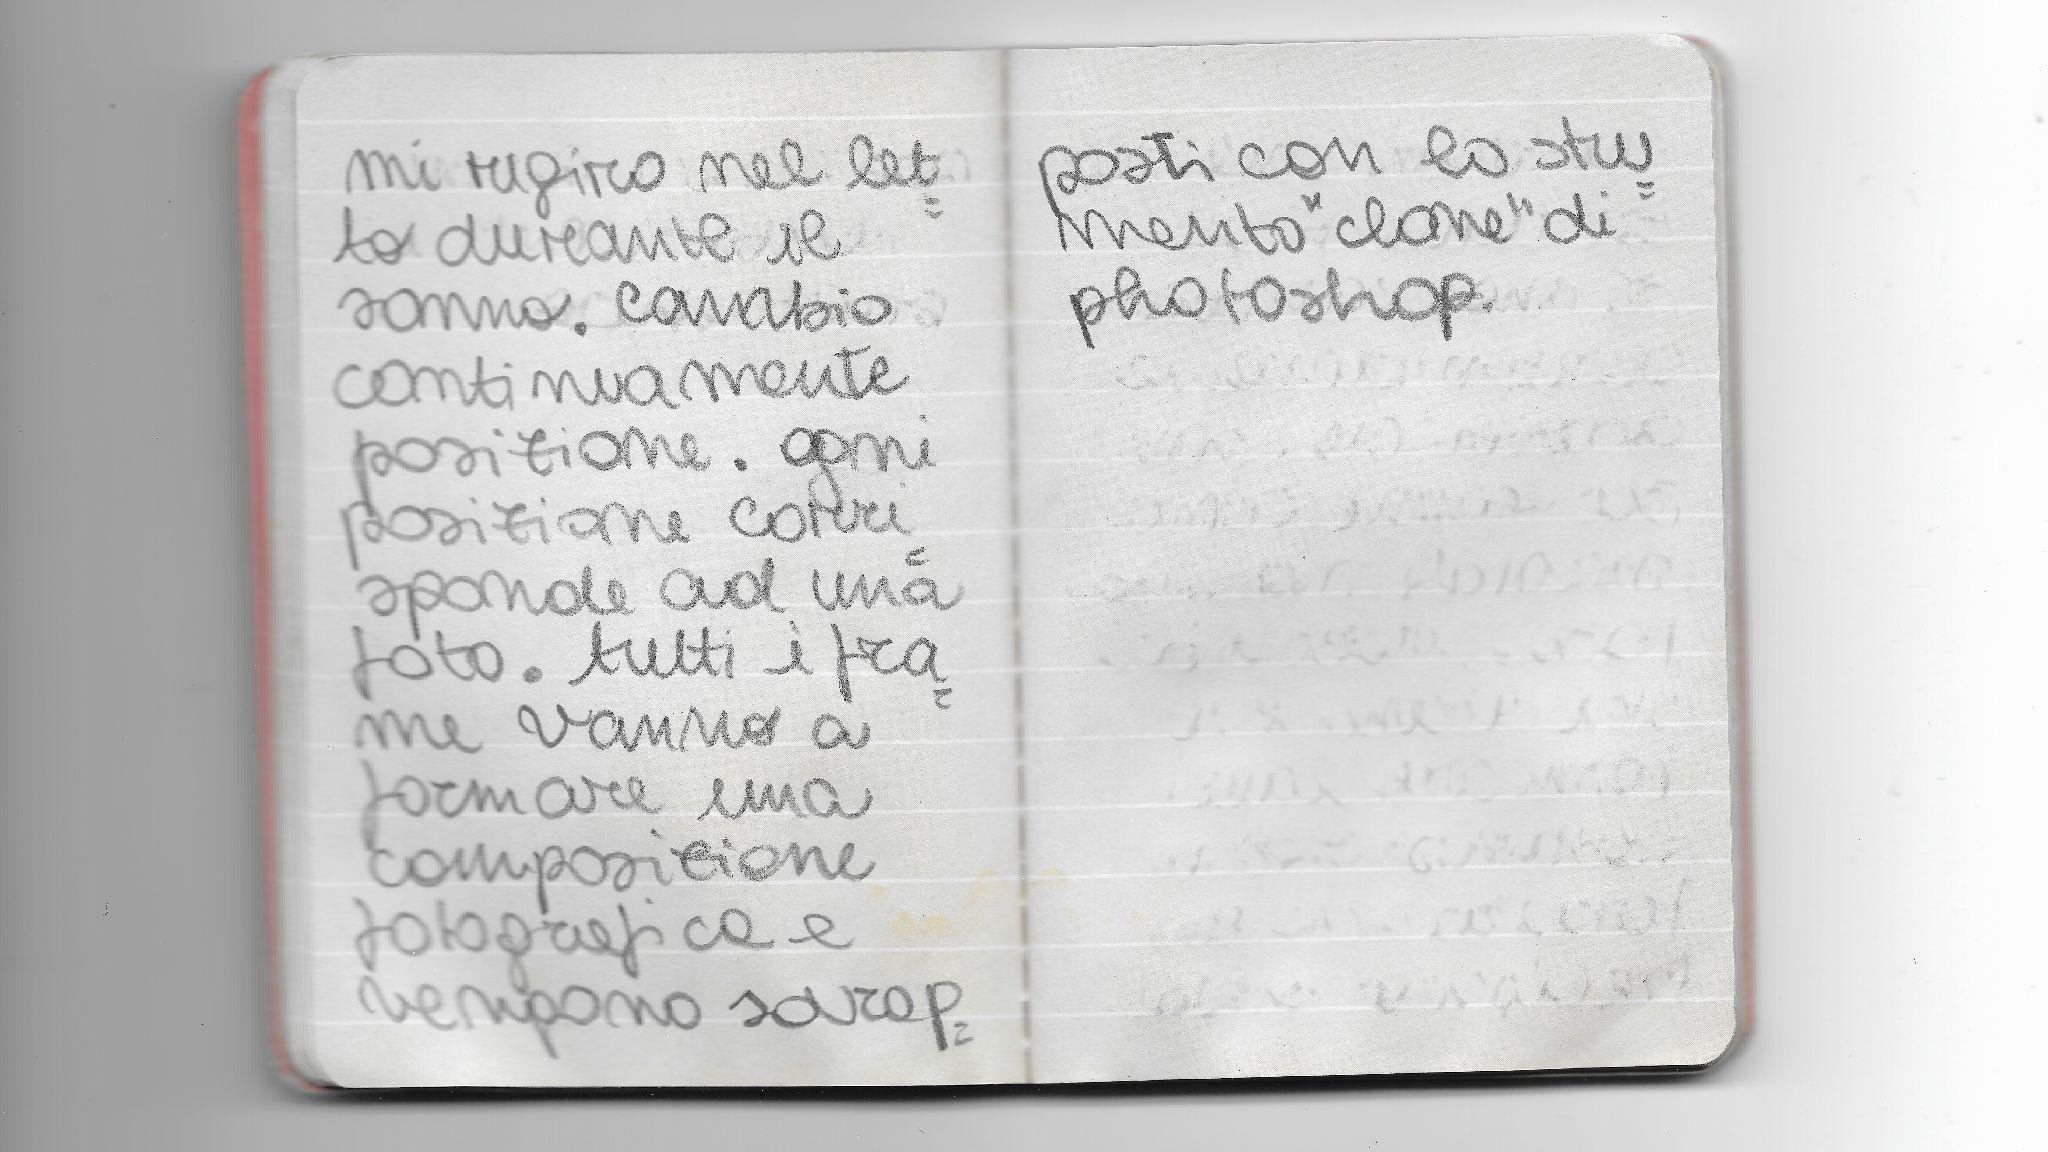 mi rugiro nel let=
to durante il
sonno. cambio
continuamente
posizione. ogni
posizione corri=
sponde ad una
foto. tutti i fra=
me vanno a
formare una
composizione
fotografica e
vengono sovrap=
posti con lo stru=
mento "clone" di
photoshop.